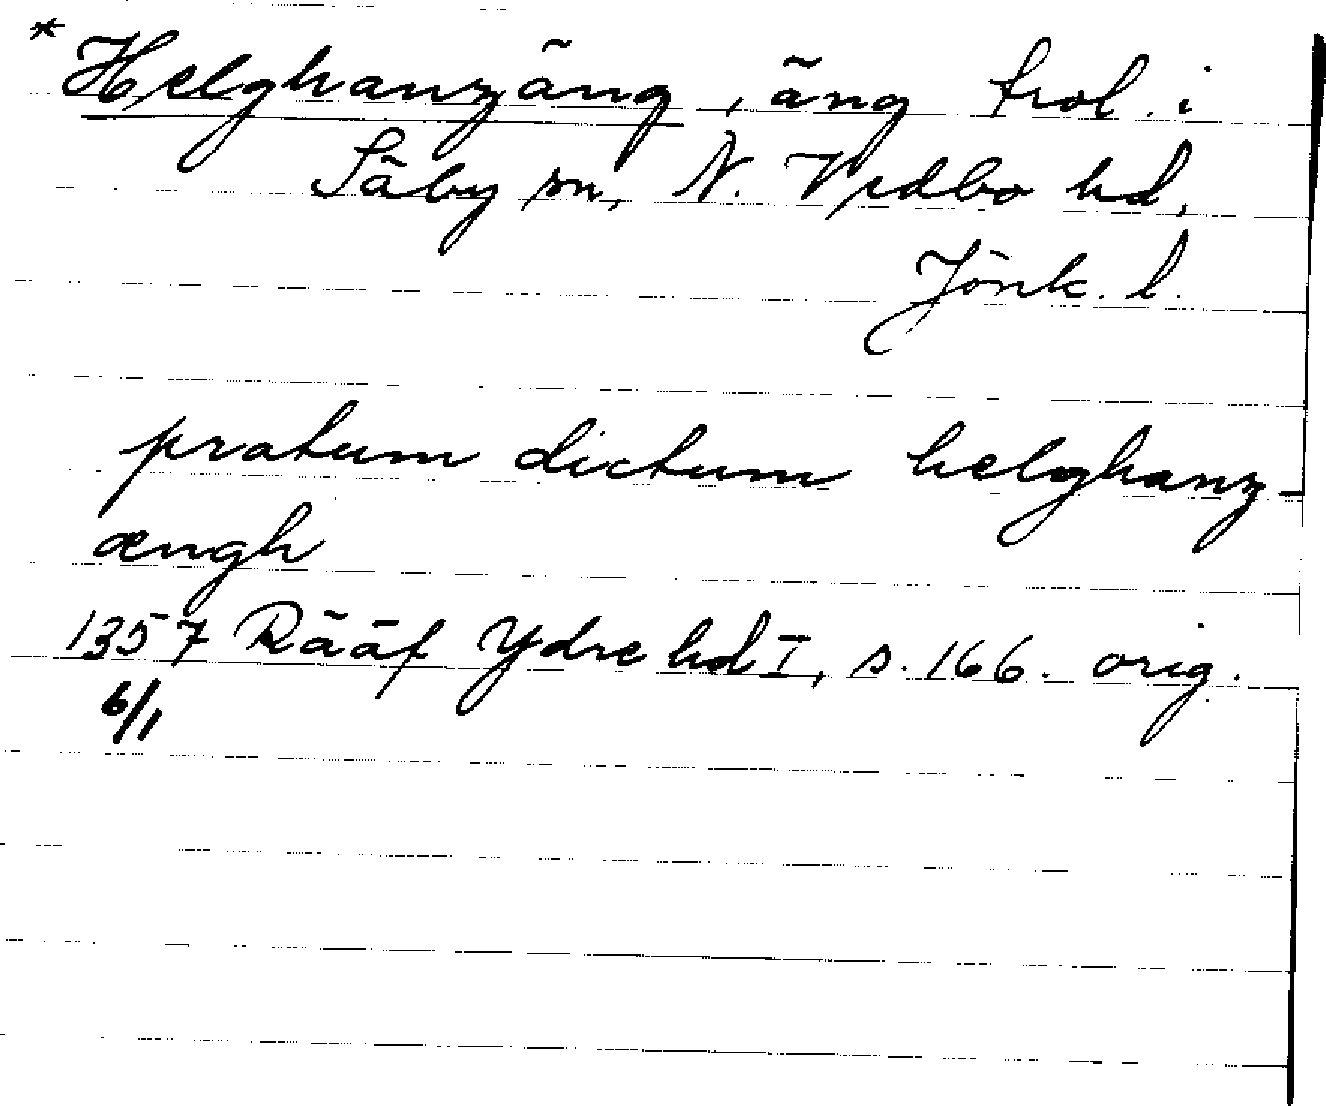 * Helghanzäng, äng trol. i
Säby sn, N. Vedbo hd,
Jönk. l.
pratum dictum helghanz-
ængh
1357 Rääf Ydre hd I, s. 166. orig.
6/1